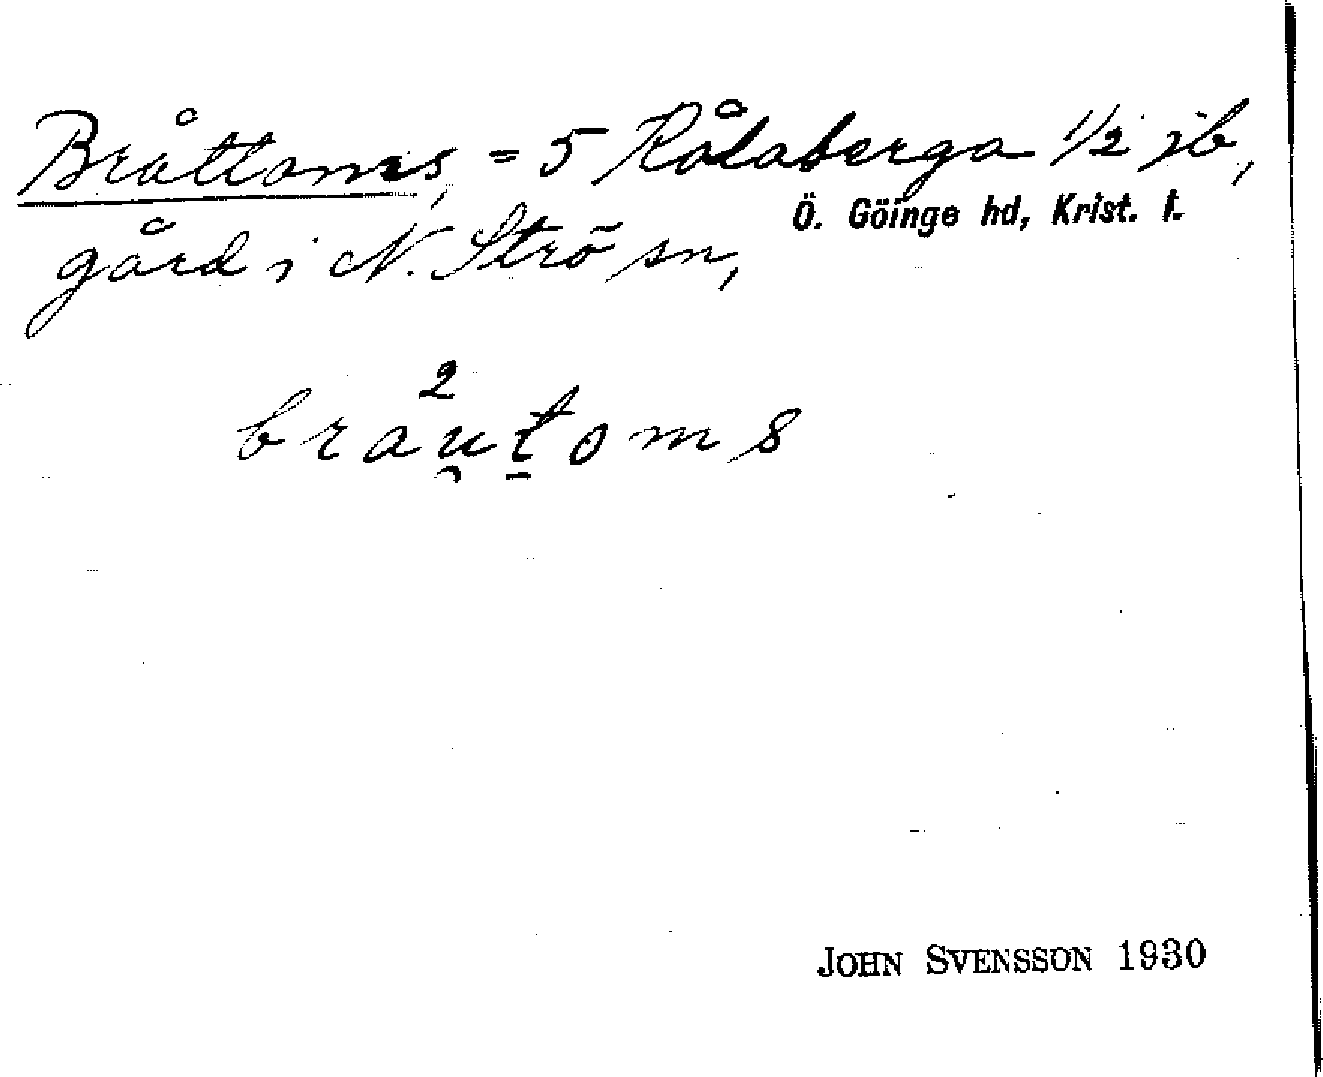 Bråttoms, = 5 Rålaberga 1/2 jb,
Ö. Göinge hd, Krist. l.
gård i N. Strö sn,
2
brau̯t̠oms
JOHN SVENSSON 1930